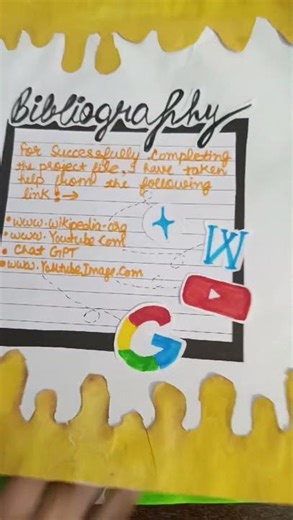 Bibliography
For Successfully completing
the project file, I have taken
help from the following
link :→
• www.wikipedia.org
• www.Youtube.com
• Chat GPT
• www.YoutubeImage.Com
W
G